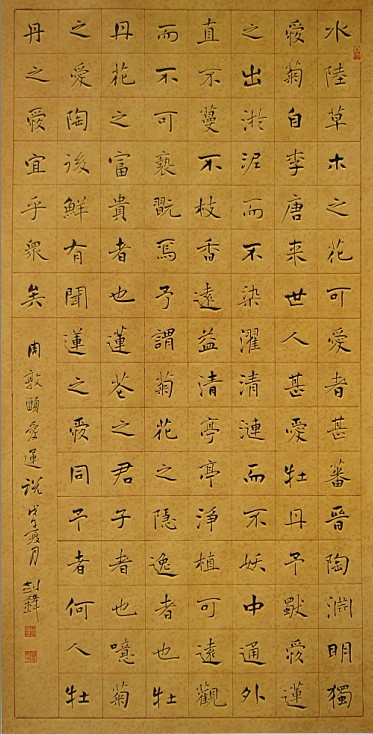 水陸草木之花可愛者甚蕃晉陶渊明獨
愛菊自李唐来世人甚愛牡丹予獨愛蓮
之出淤泥而不染濯清漣而不妖中通外
直不蔓不枝香遠益清亭亭淨植可遠觀
而不可褻翫焉予謂菊花之隱逸者也牡
丹花之富貴者也蓮花之君子者也噫菊
之愛陶後鮮有聞蓮之愛同予者何人牡
丹之愛宜乎衆矣
周敦頤愛蓮說戊子夏月